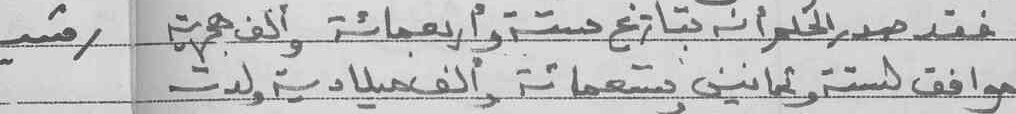 فقد صدر الحكم أنه بتاريخ ستة وأربعمائة وألف هجرية
موافق لستة وثمانين وتسعمائة وألف ميلادية ولدت